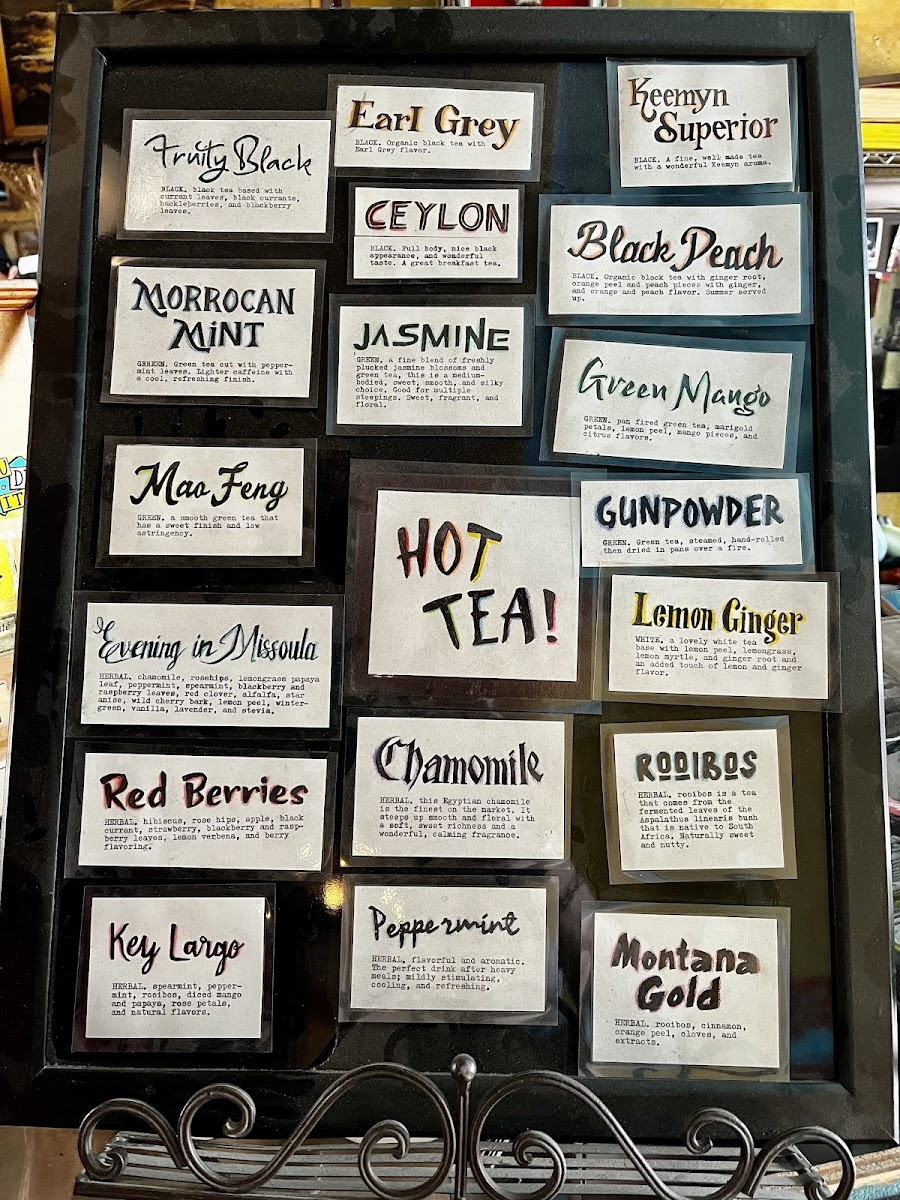 Fruity Black
BLACK. black tea based with
currant leaves, black currants,
huckleberries, and blackberry
leaves.
Earl Grey
BLACK. Organic black tea with
Earl Grey flavor.
Keemyn
Superior
BLACK. A fine, well made tea
with a wonderful Keemyn aroma.
CEYLON
BLACK. Full body, nice black
appearance, and wonderful
taste. A great breakfast tea.
Black Peach
BLACK. Organic black tea with ginger root,
orange peel and peach pieces with ginger,
and orange and peach flavor. Summer served
up.
MORROCAN
MINT
GRREEN. Green tea cut with pepper-
mint leaves. Lighter caffeine with
a cool, refreshing finish.
JASMINE
GREEN, a fine blend of freshly
plucked jasmine blossoms and
green tea, this is a medium-
bodied, sweet, smooth, and silky
choice. Good for multiple
steepings. Sweet, fragrant, and
floral.
Green Mango
GREEN. pan fired green tea, marigold
petals, lemon peel, mango pieces, and
citrus flavors.
Mao Feng
GREEN. a smooth green tea that
has a sweet finish and low
astringency.
HOT
TEA!
GUNPOWDER
GREEN. Green tea, steamed, hand-rolled
then dried in pans over a fire.
Lemon Ginger
WHITE. a lovely white tea
base with lemon peel, lemongrass,
lemon myrtle, and ginger root and
an added touch of lemon and ginger
flavor.
Evening in Missoula
HERBAL. chamomile, rosehips, lemongrass papaya
leaf, peppermint, spearmint, blackberry and
raspberry leaves, red clover, alfalfa, star
anise, wild cherry bark, lemon peel, winter-
green, vanilla, lavender, and stevia.
Red Berries
HERBAL. hibiscus, rose hips, apple, black
currant, strawberry, blackberry and rasp-
berry leaves, lemon verbena, and berry
flavoring.
Chamomile
HERBAL. this Egyptian chamomile
is the finest on the market. It
steeps up smooth and floral with
a soft, sweet richness and a
wonderful, calming fragrance.
ROOIBOS
HERBAL. rooibos is a tea
that comes from the
fermented leaves of the
Aspalathus linearis bush
that is native to South
Africa. Naturally sweet
and nutty.
Key Largo
HERBAL. spearmint, pepper-
mint, rooibos, diced mango
and papaya, rose petals,
and natural flavors.
Peppermint
HERBAL. flavorful and aromatic.
The perfect drink after heavy
meals; mildly stimulating,
cooling, and refreshing.
Montana
Gold
HERBAL. rooibos, cinnamon,
orange peel, cloves, and
extracts.